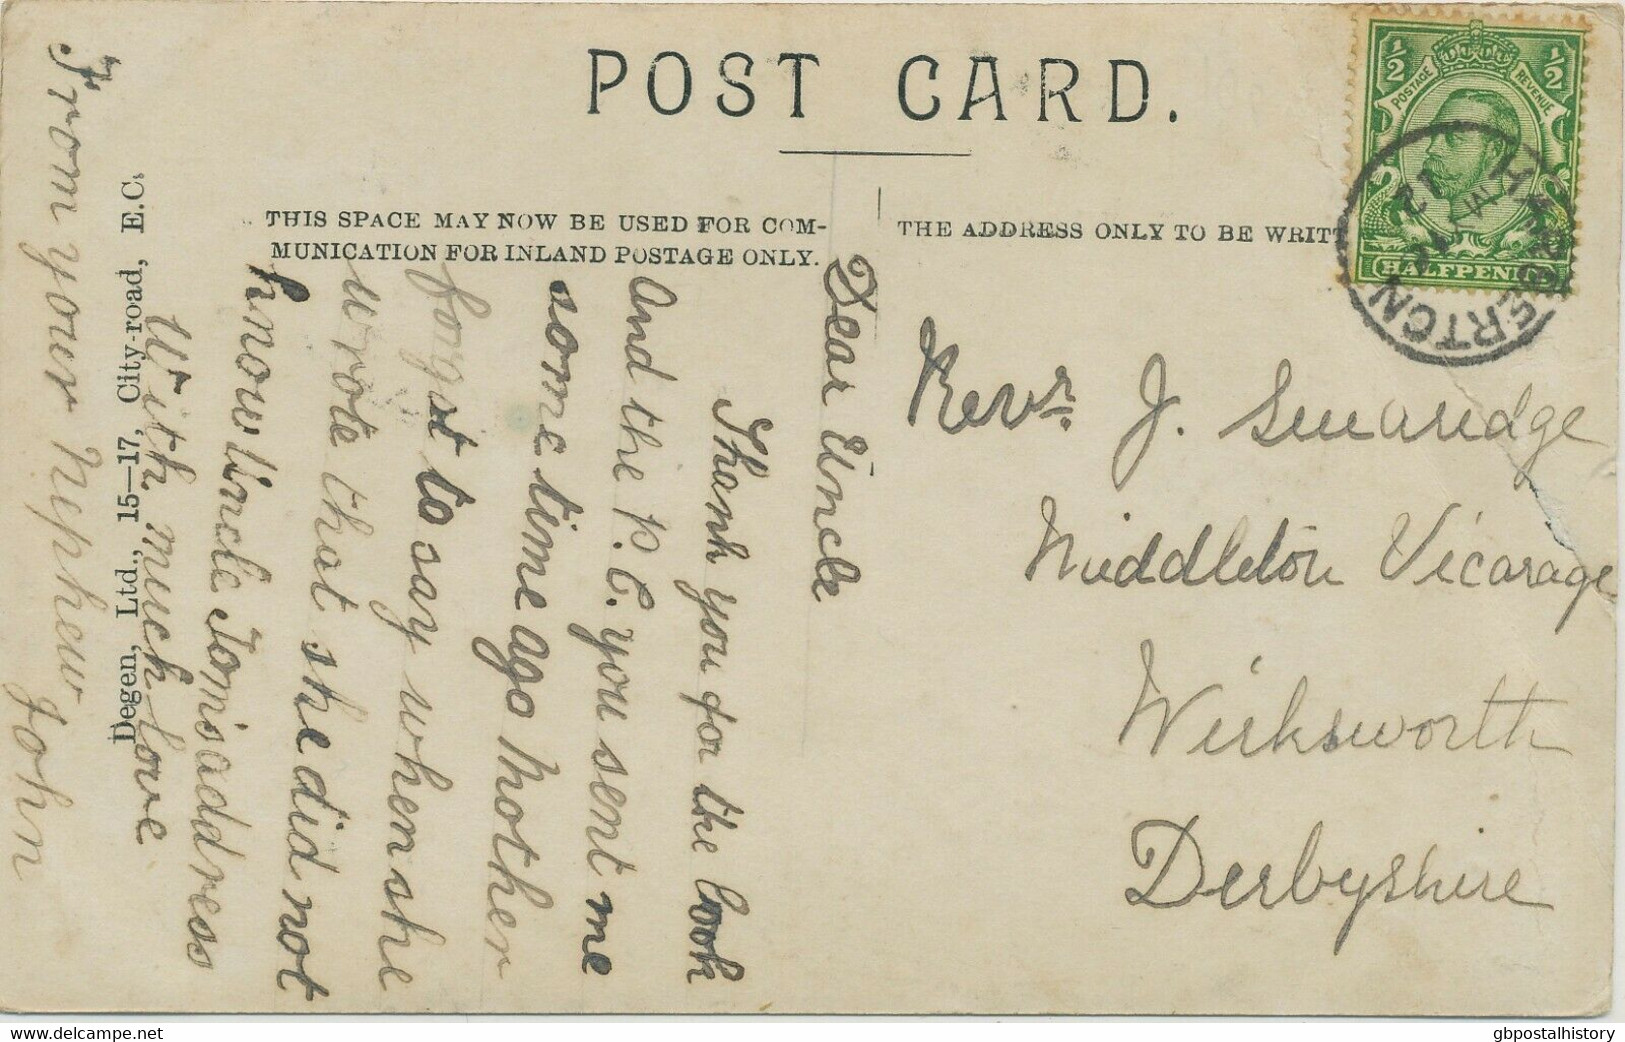 POST CARD.
THIS SPACE MAY NOW BE USED FOR COM-
MUNICATION FOR INLAND POSTAGE ONLY.
THE ADDRESS ONLY TO BE WRITT
½ ½
POSTAGE REVENUE
HALFPENNY
12
Revr. J. Smaridge
Middleton Vicarage
Wirksworth
Derbyshire
Dear Uncle
Thank you for the book
And the P.C. you sent me
some time ago Mother
forgot to say when she
wrote that she did not
know Uncle Tom's address
With much love
From your Nephew John
Degen, Ltd., 15—17, City-road, E.C.
delcampe.net
gbpostalhistory